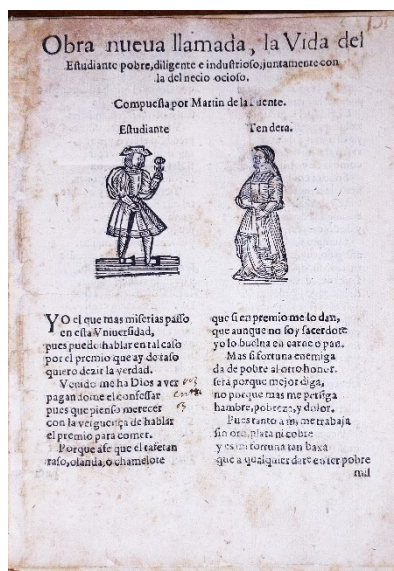 Obra nueua llamada, la Vida del
Estudiante pobre, diligente e industrioso, juntamente con
la del necio ocioso.
Compuesta por Martin de la
Estudiante
Tendera.
YO el que mas miserias passo
en esta Vniuersidad,
pues puedo hablar en tal caso
por el premio que ay de taso
quiero dezir la verdad.
Venido me ha Dios a ver
pagandome el confessar
pues que pienso merecer
con la verguença de hablar
el premio para comer.
Porque áse que el tafetan
raso, olanda, o chamelote
que si en premio me lo dan,
que aunque no soy sacerdote
yo lo buelua en carne o pan.
Mas si fortuna enemiga
da de pobre al otro honor.
será porque mejor diga,
no porque mas me persiga
hambre, pobreza, y dolor.
Pues tanto a mi me trabaja
sin oro, plata ni cobre
y es mi fortuna tan baxa
que a qualquier dare en ser pobre
mil